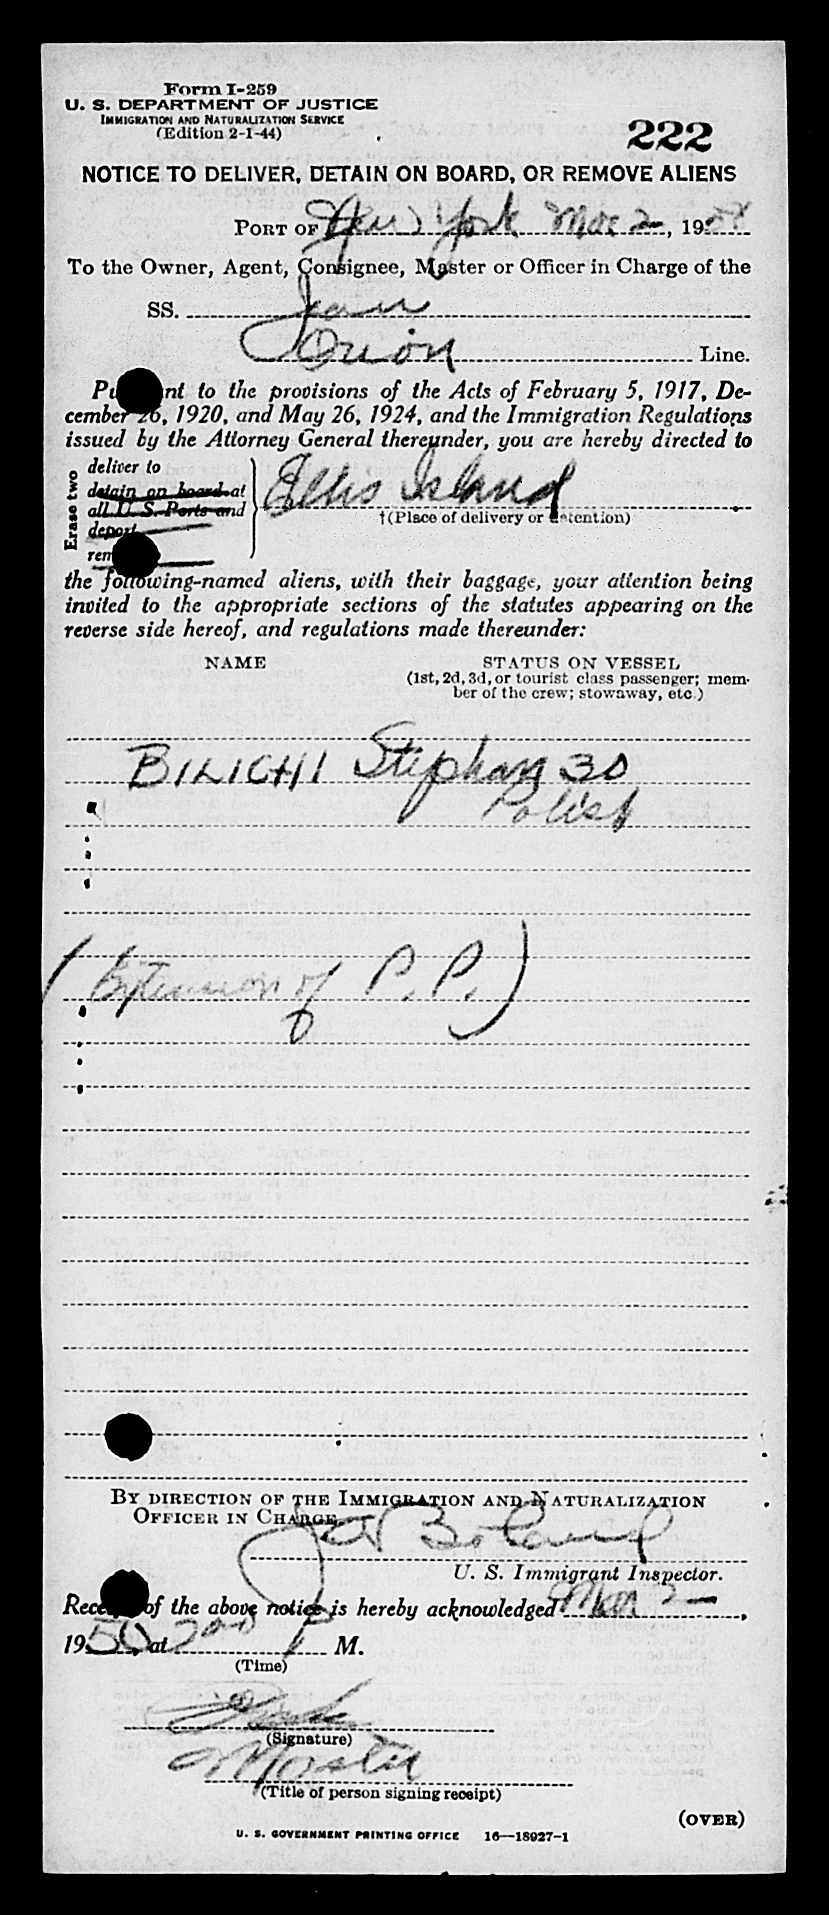 Form I-259
U. S. DEPARTMENT OF JUSTICE
IMMIGRATION AND NATURALIZATION SERVICE
(Edition 2-1-44)
222
NOTICE TO DELIVER, DETAIN ON BOARD, OR REMOVE ALIENS
PORT OF New York Mar 2, 1950
To the Owner, Agent, Consignee, Master or Officer in Charge of the
SS. Jean
Orion Line.
Pu nt to the provisions of the Acts of February 5, 1917, De-
cember 26, 1920, and May 26, 1924, and the Immigration Regulations
issued by the Attorney General thereunder, you are hereby directed to
Erase two
deliver to
detain on board at
all U. S. Ports and
deport
rem
Ellis Island
†(Place of delivery or detention)
the following-named aliens, with their baggage, your attention being
invited to the appropriate sections of the statutes appearing on the
reverse side hereof, and regulations made thereunder:
NAME STATUS ON VESSEL
(1st, 2d, 3d, or tourist class passenger; mem-
ber of the crew; stowaway, etc.)
BILICHI Stephan 30
Polish
(Extension of P. P.)
BY DIRECTION OF THE IMMIGRATION AND NATURALIZATION
OFFICER IN CHARGE
Boland
U. S. Immigrant Inspector.
Rece of the above notice is hereby acknowledged Mar 2
1950, at 200 P M.
(Time)
(Signature)
Master
(Title of person signing receipt)
(OVER)
U. S. GOVERNMENT PRINTING OFFICE 16—18927-1